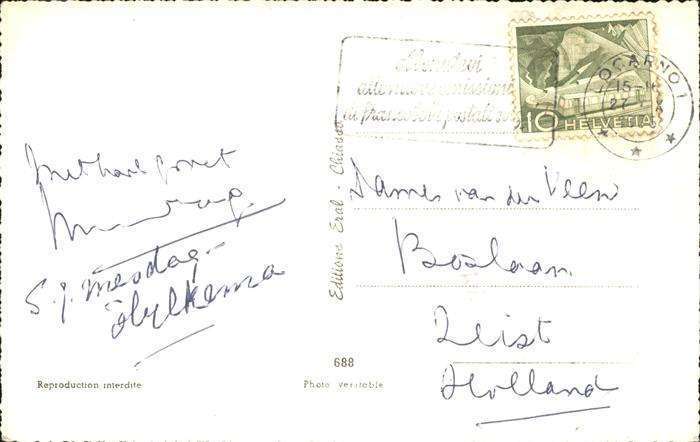 Abonatevi
alle nuove emissioni
di francobolli postali sv
LOCARNO 1
15-
27
10 HELVETIA
Met hart. groet
S. J. Mesdag-
Hylkema
Editions Eral - Chiasso
Dames van der Veen
Boslaan
Zeist
Holland
688
Reproduction interdite
Photo véritable